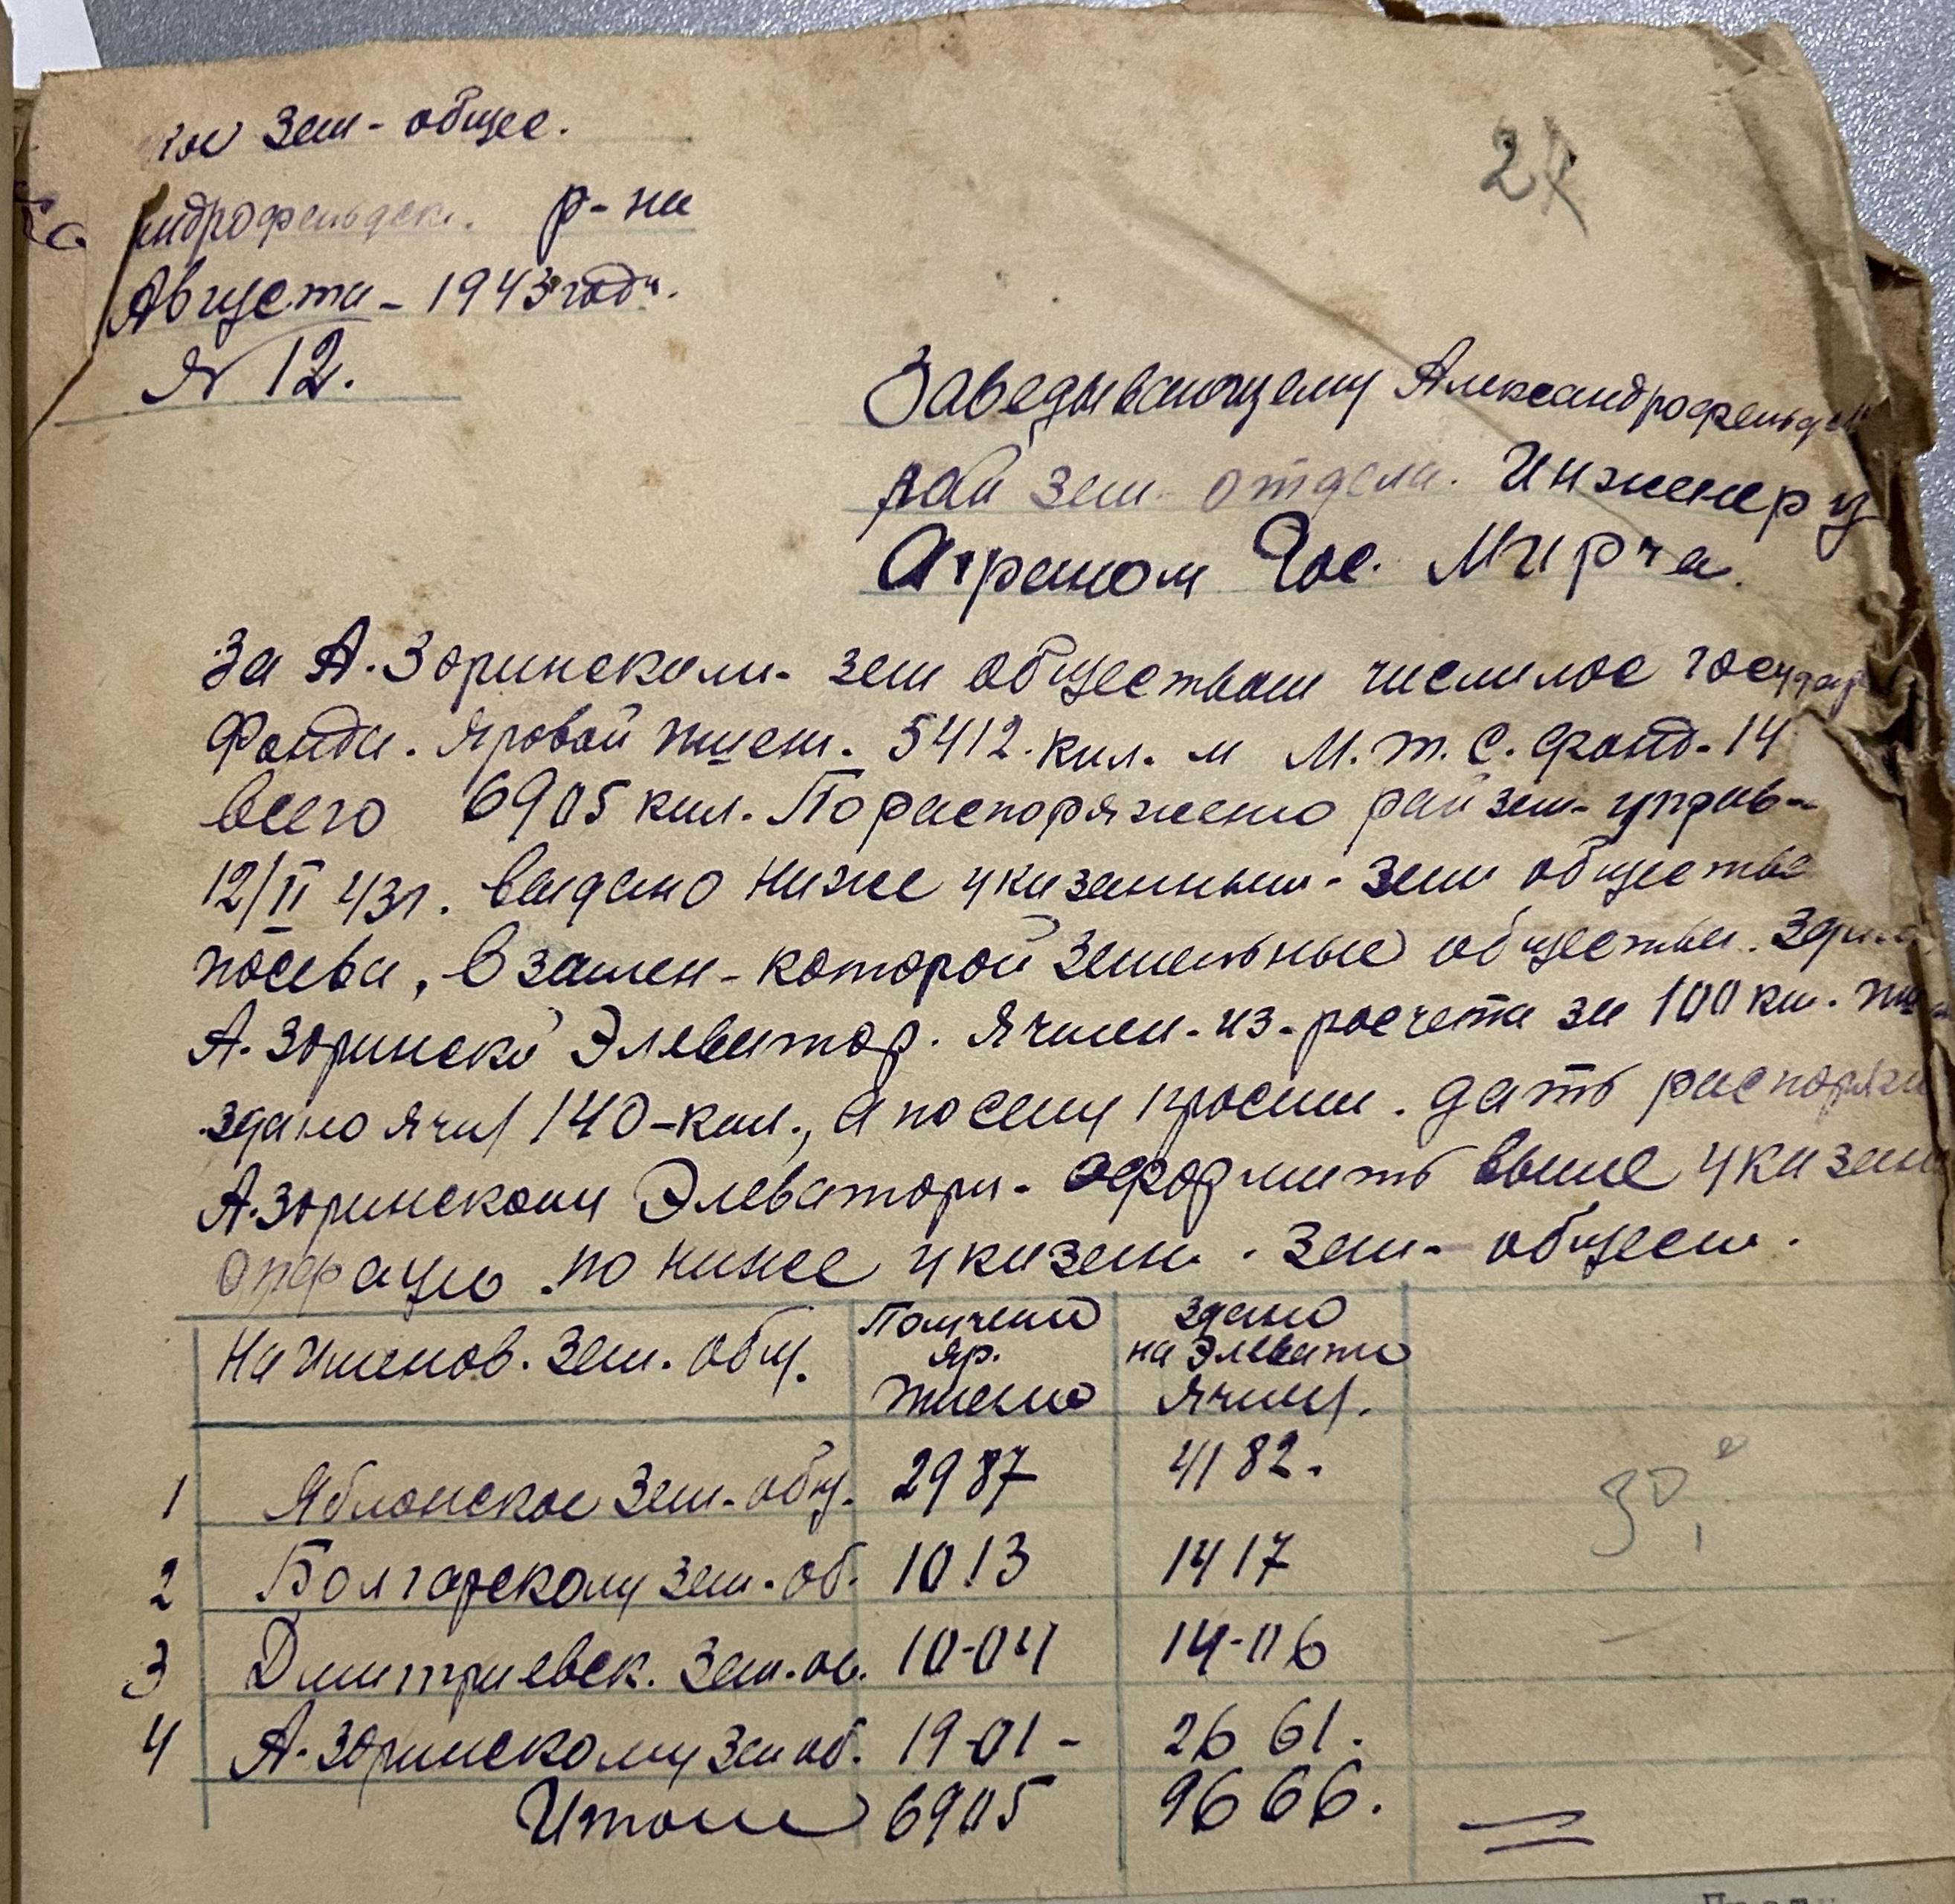 кое Зем - общес.
ндрофельдск. р-на
Августа - 1943 года.
№ 12.
24
Заведывающему Александрофельдск
рай зем отдела. Инженеру
Агроном Гос. Мирча.
За А. Зоринским - зем обществом числилос государ
Фонда. Яровой пшен. 5412. кил. и М. Т. С. фонд - 14
всего 6905 кил. По распоряжено рай зем - управ -
12/II 43г. выдано ниже указанным - зем общества
посева, в замен - которой земельные общества. здали
А. Зоринский Элеватор. Ячмен - из - росчета за 100 кил. пш
здано ячм 140 - кил., а посему просим. дать распоряже
А. Зоринскому Элеватору - оформить выше указан
операцю по ниже указан. зем - общест.
Наименов. Зем. общ. Получено яр. пшено Здано на Элевато Ячмя.
1 Яблонское Зем - общ. 2987 4182.
2 Болгарскому зем - об. 1013 1417
3 Дмитриевск. Зем. об. 10-04 14-06
4 А. Зоринскому Зем об. 19-01 - 26 61.
Итом 6905 9666.